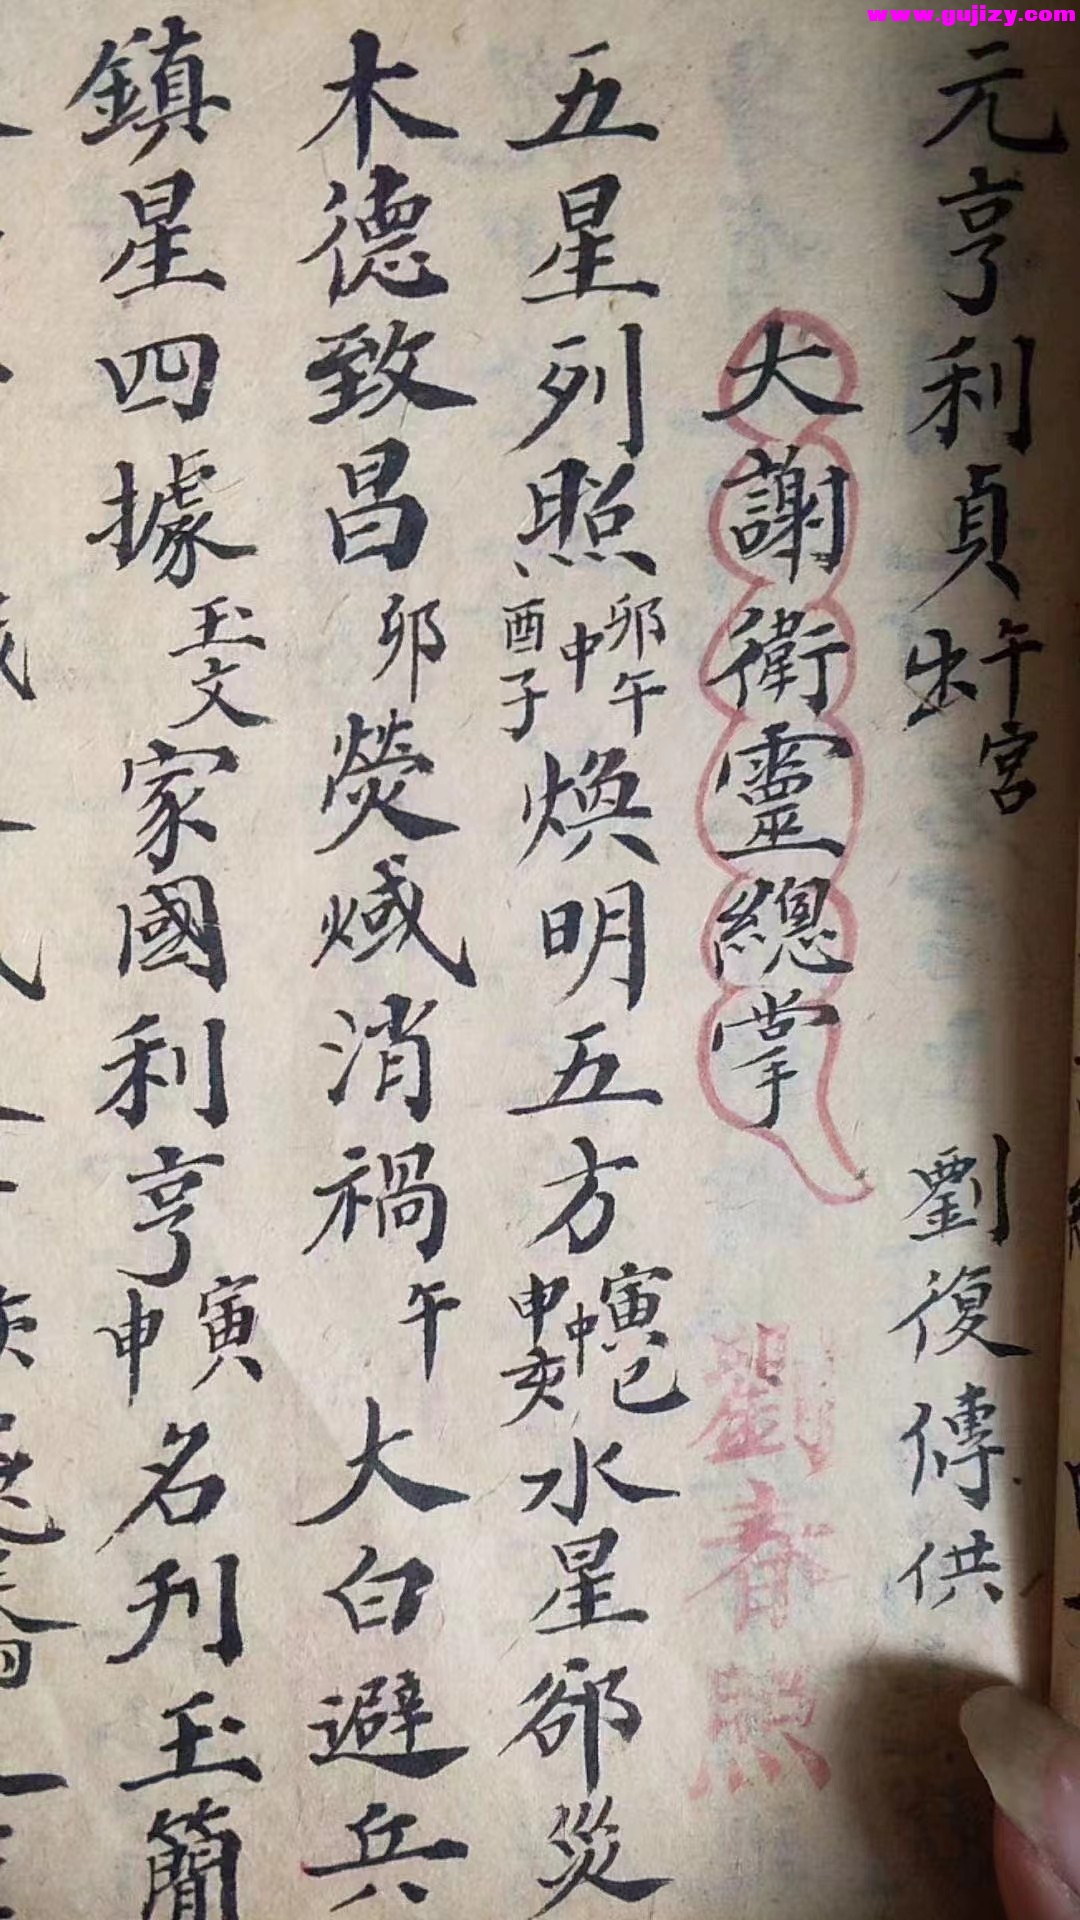 www.gujizy.com
元亨利貞 午宮 劉復傳供
大謝衛靈總掌 劉春照
五星列照 卯午中酉子 煥明五方 寅巳中申亥 水星郤災
木德致昌 卯 熒惑消禍 午 大白避兵
鎮星四據 玉文 家國利亨 寅申 名刋玉簡